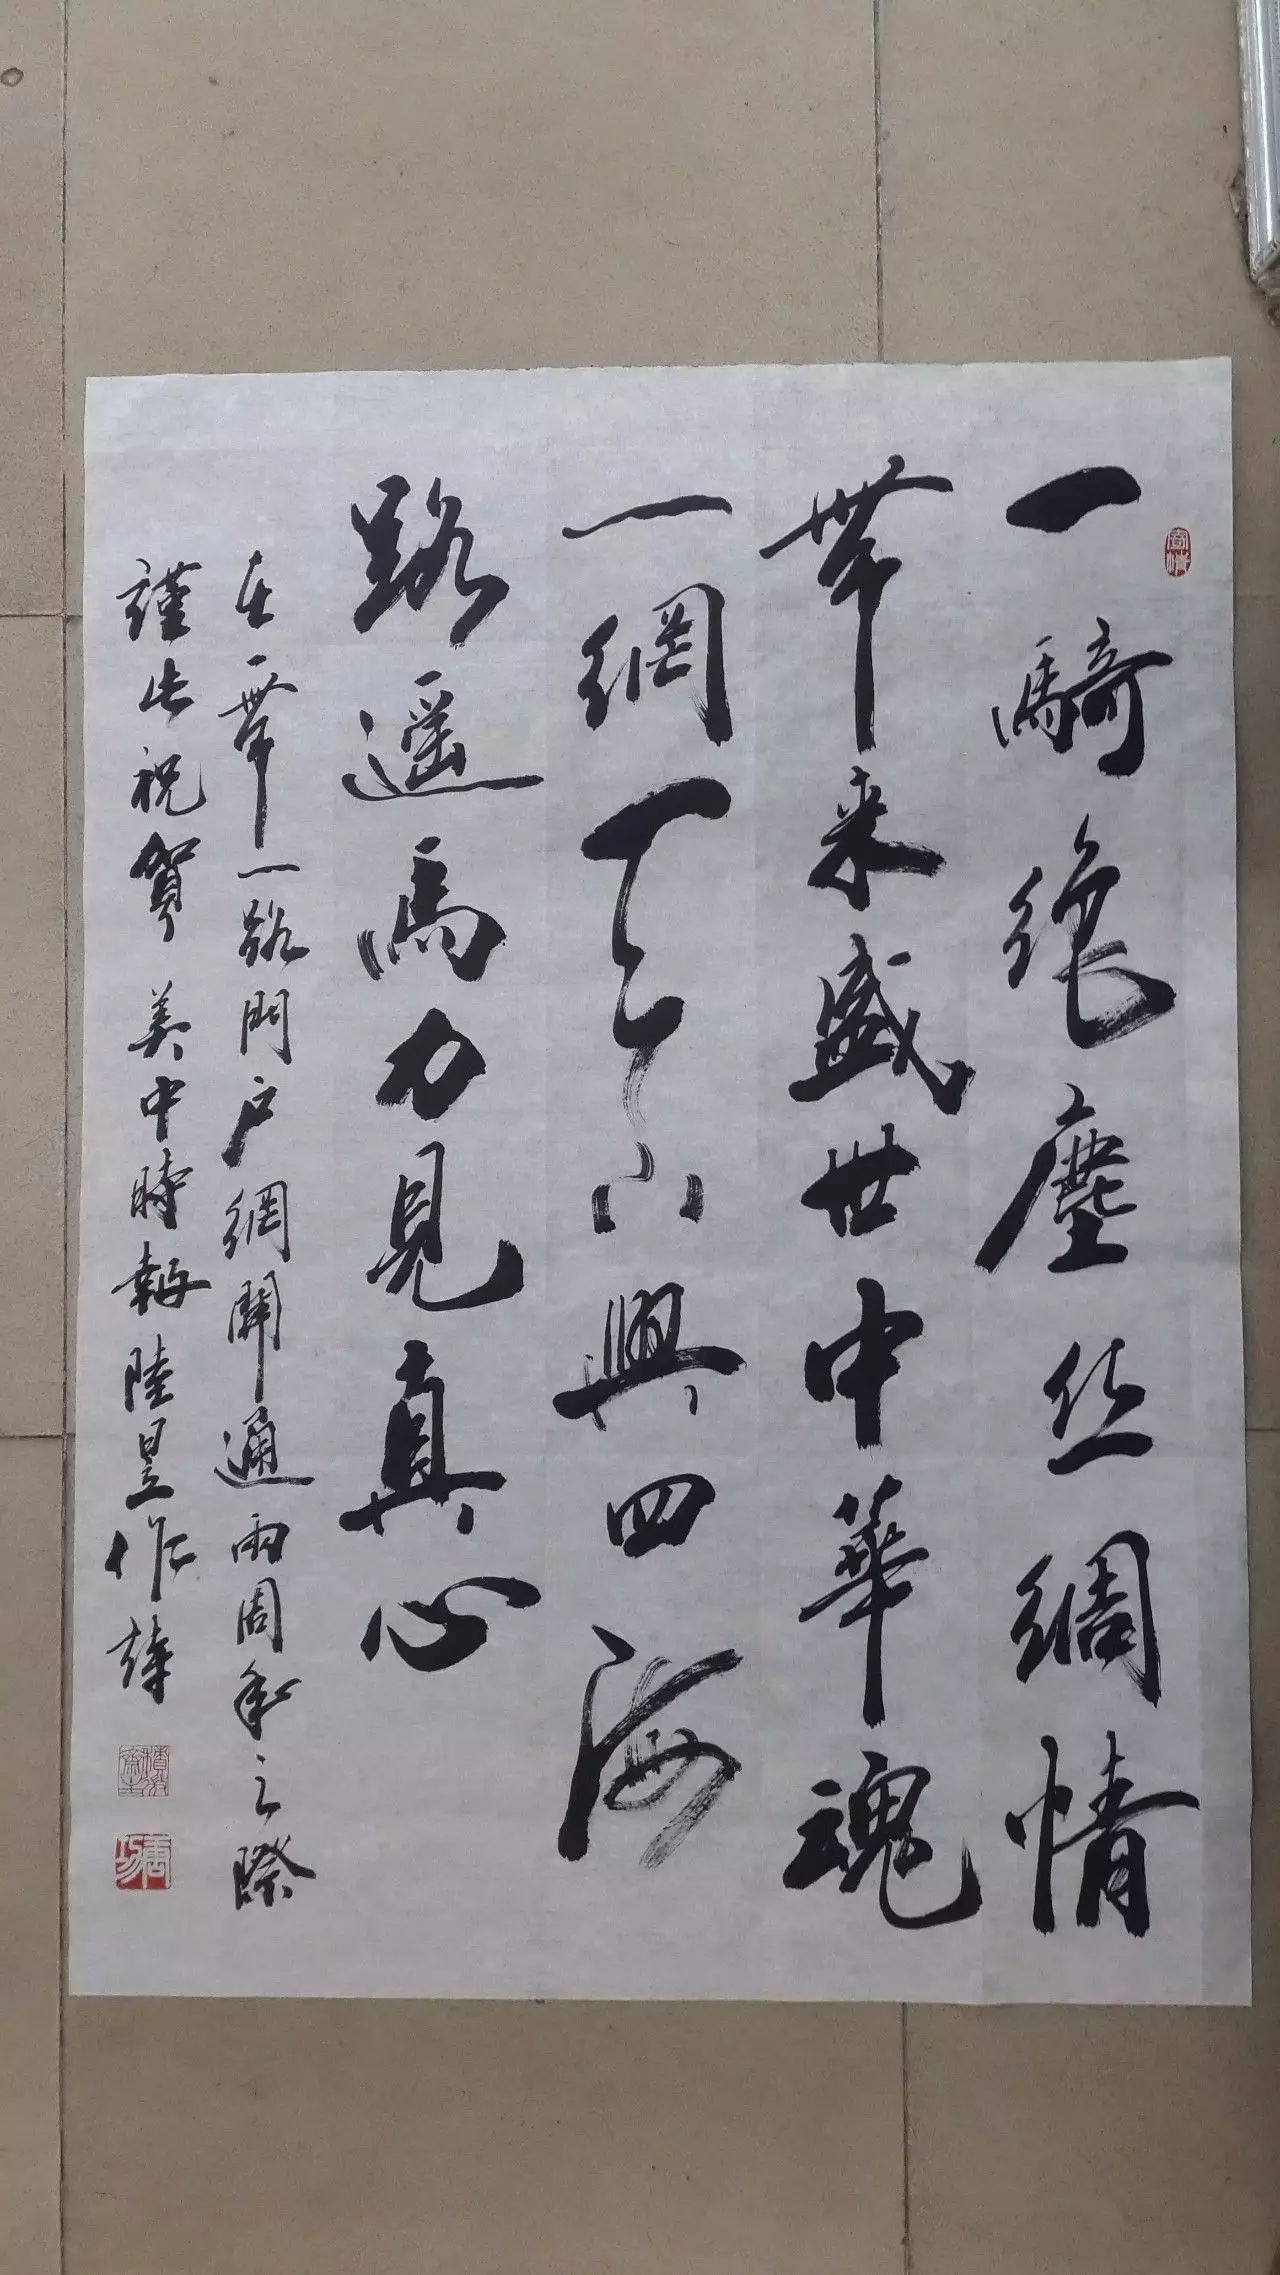 一騎絶塵丝綢情
帶来盛世中華魂
一網天下興四海
路遥馬力見真心
在一帶一路門户網開通兩周年之際
謹此祝賀 美中時報陸昱作詩